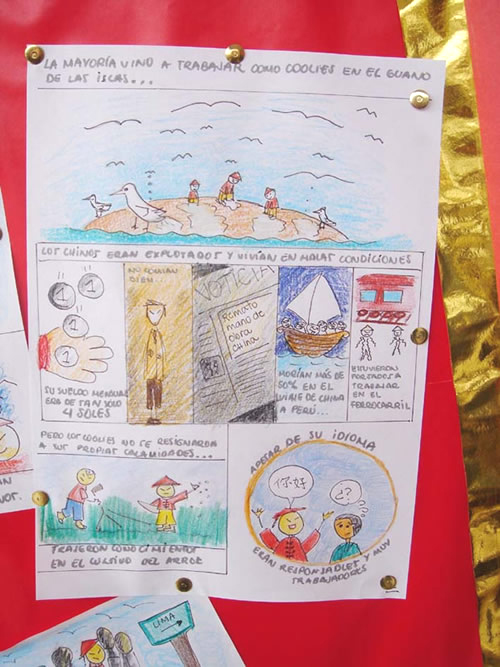 LA MAYORÍA VINO A TRABAJAR COMO COOLIES EN EL GUANO
DE LAS ISLAS...
LOS CHINOS ERAN EXPLOTADOS Y VIVÍAN EN MALAS CONDICIONES
1
1
1
1
SU SUELDO MENSUAL
ERA DE TAN SOLO
4 SOLES
NO COMÍAN
BIEN...
NOTICIA
Remato
mano de
obra
china
MORÍAN MÁS DE
50% EN EL
VIAJE DE CHINA
A PERÚ...
ESTUVIERON
FORZADOS A
TRABAJAR
EN EL
FERROCARRIL
PERO LOS COOLIES NO SE RESIGNARON A
A SUS PROPIAS CALAMIDADES...
TRAJERON CONOCIMIENTOS
EN EL CULTIVO DEL ARROZ
APESAR DE SU IDIOMA
你·好
¿?
ERAN RESPONSABLES Y MUY
TRABAJADORES
NOT.
LIMA